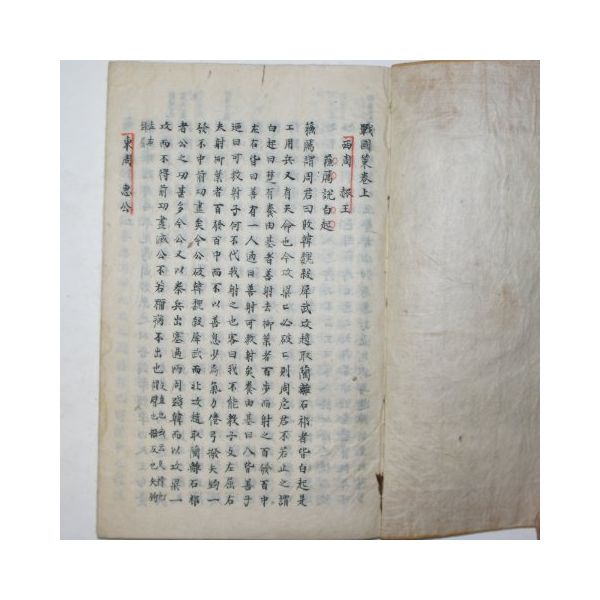 戰國策卷上
西周 赧王
蘓厲說白起
蘓厲謂周君曰敗韓魏殺犀武攻趙取藺離石祁者皆白起是
工用兵又有天命也今攻梁〻必破〻則周危君不若止之謂
白起曰楚有養由基者善射去柳葉者百步而射之百發百中
左右皆曰善有一人過曰善射可敎射矣養由基曰人皆善子
廼曰可敎射子何不代我射之也客曰我不能敎子支左屈右
夫射柳葉者百發百中而不以善息少焉氣力倦弓撥矢鉤一
發不中前功盡矣今公破韓魏殺犀武而北攻趙取藺離石祁
者公之功甚多今公又以秦兵出塞過兩周踐韓而以攻梁一
攻而不得前功盡滅公不若稱病不出也
東周 惠公